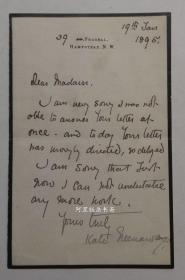 39 FROGNAL.
HAMPSTEAD. N.W.
19th Jan
1896.
Dear Madam.
I am very sorry I was not
able to answer your letter at
once - and to day your letter
has wrongly directed, so delayed
I am sorry that just
now I can not undertake
any more work.
Yours truly
Kate Greenaway